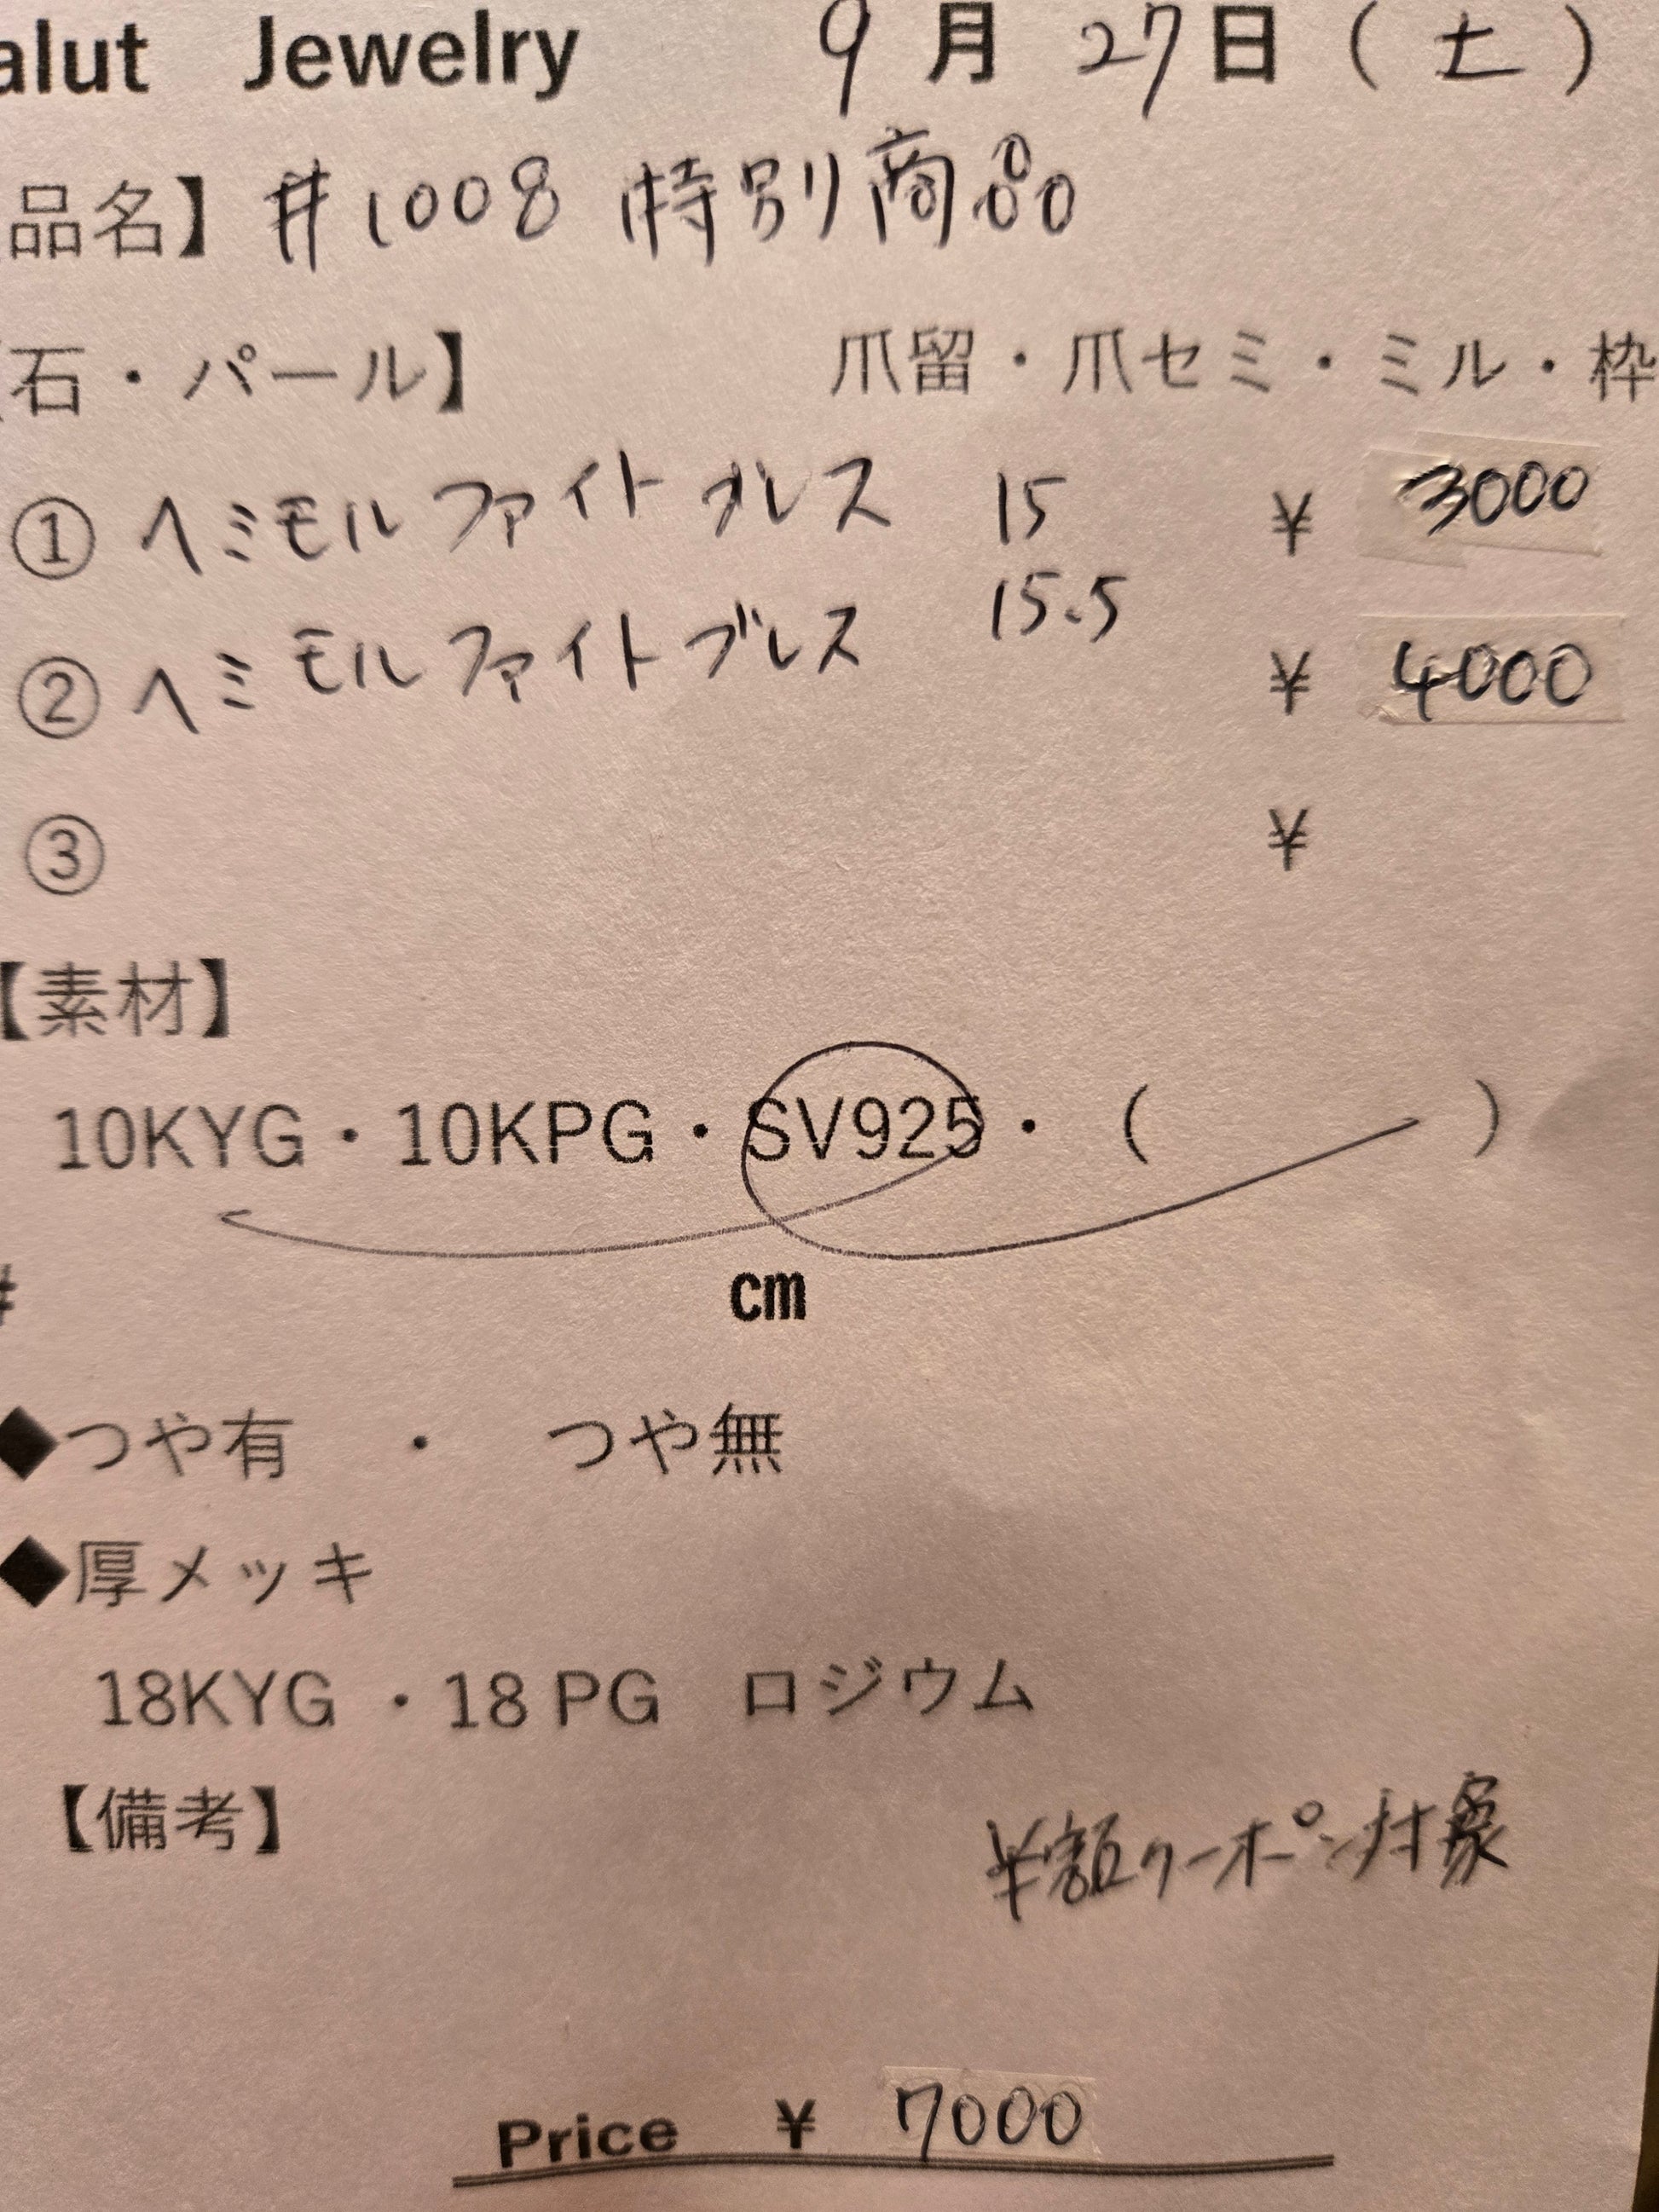 alut Jewelry 9月27日(土)
品名】#1008 特別商品
【石・パール】 爪留・爪セミ・ミル・枠
① ヘミモルファイトブレス 15 ¥ 3000
15.5
② ヘミモルファイトブレス ¥ 4000
③ ¥
【素材】
10KYG・10KPG・SV925・( )
#
cm
◆つや有 ・ つや無
◆厚メッキ
18KYG ・18 PG ロジウム
【備考】
半額クーポン対象
Price ¥ 7000